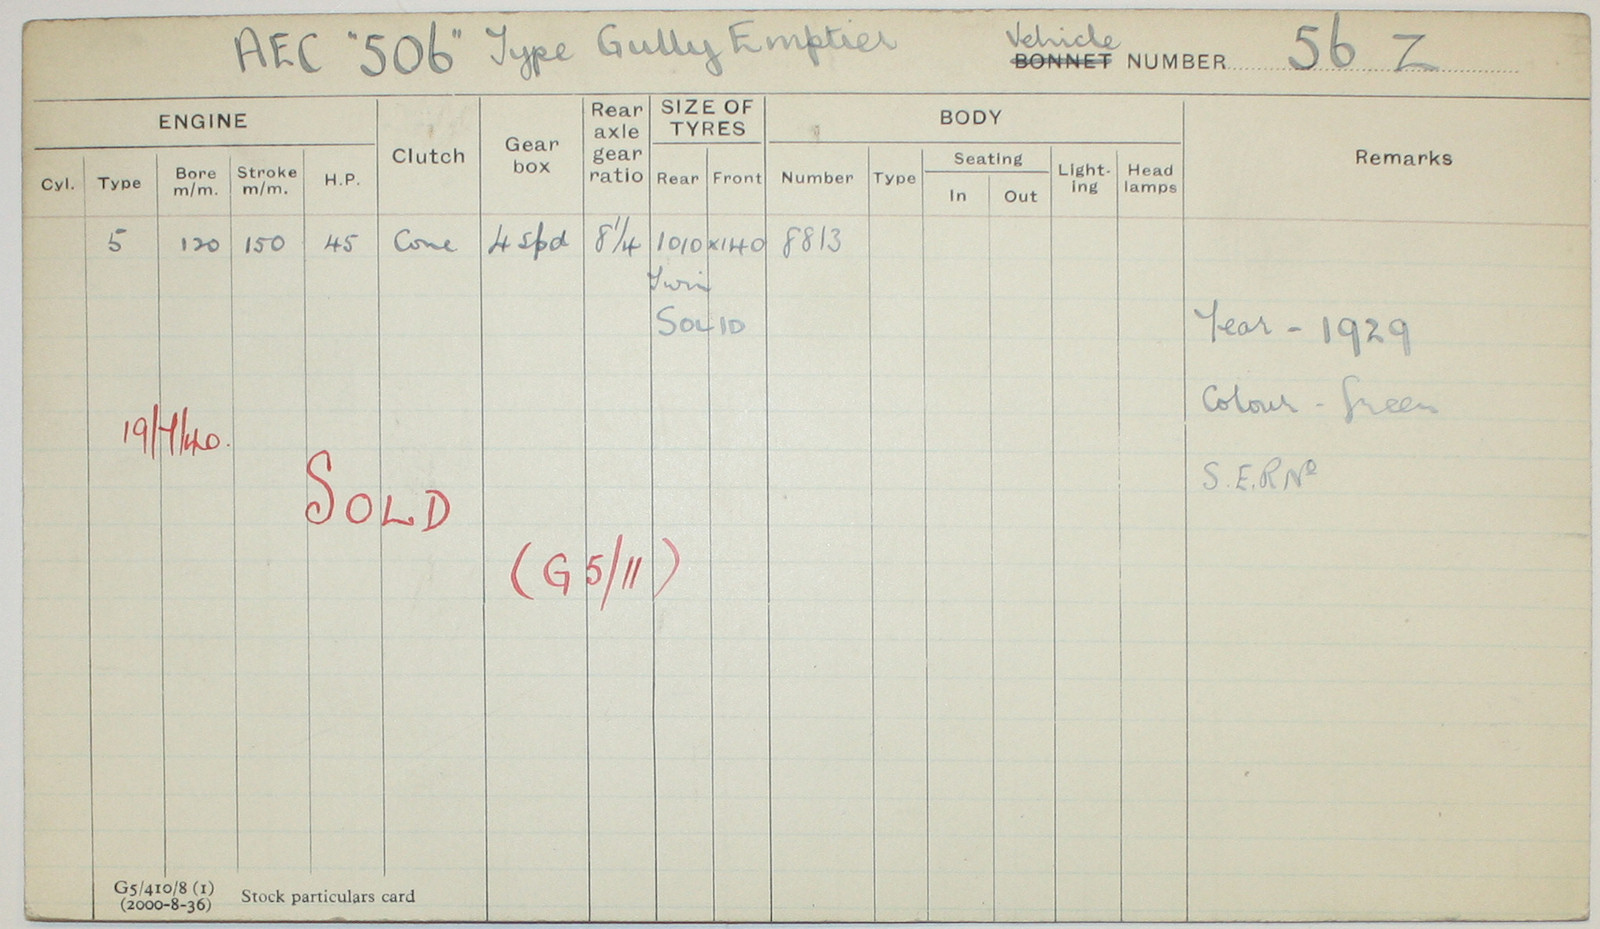 AEC "506" Type Gully Emptier Vehicle BONNET NUMBER 56 Z
ENGINE Clutch Gear box Rear axle gear ratio SIZE OF TYRES BODY Remarks
Cyl. Type Bore m/m. Stroke m/m. H.P. Rear Front Number Type Seating In Out Light-ing Head lamps
5 120 150 45 Cone 4 spd 8 1/4 1010 x 140 8813
Twin
SOLID
Year - 1929
Colour - Green
19/7/40.
S.E.R Nº
SOLD
(G 5/11)
G5/410/8 (1)
(2000-8-36) Stock particulars card